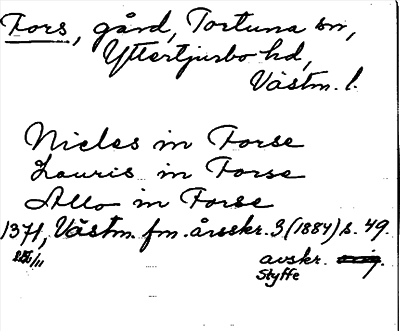 Fors, gård, Tortuna sn,
Yttertjurbo hd,
Västm. l.
Nicles in Forse
Lauris in Forse
Allo in Forse
1371, Västm. fm. årsskr. 3 (1884) s. 49.
avskr.
Styffe